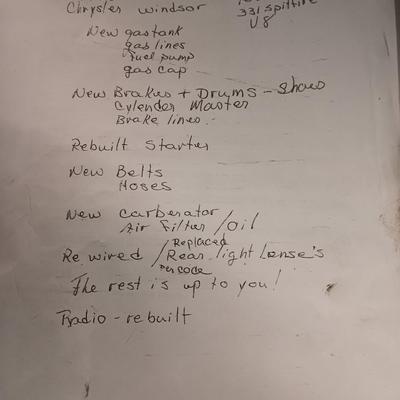 Chrysler Windsor
331 Spitfire
V8
New gas tank
gas lines
Fuel pump
gas cap
New Brakes + Drums - shoes
Cylender Master
Brake lines
Rebuilt Starter
New Belts
Hoses
New Carberator
Air Filter / oil
Replaced
Re wired / Rear light Lense's
Per code
The rest is up to you!
Radio - rebuilt